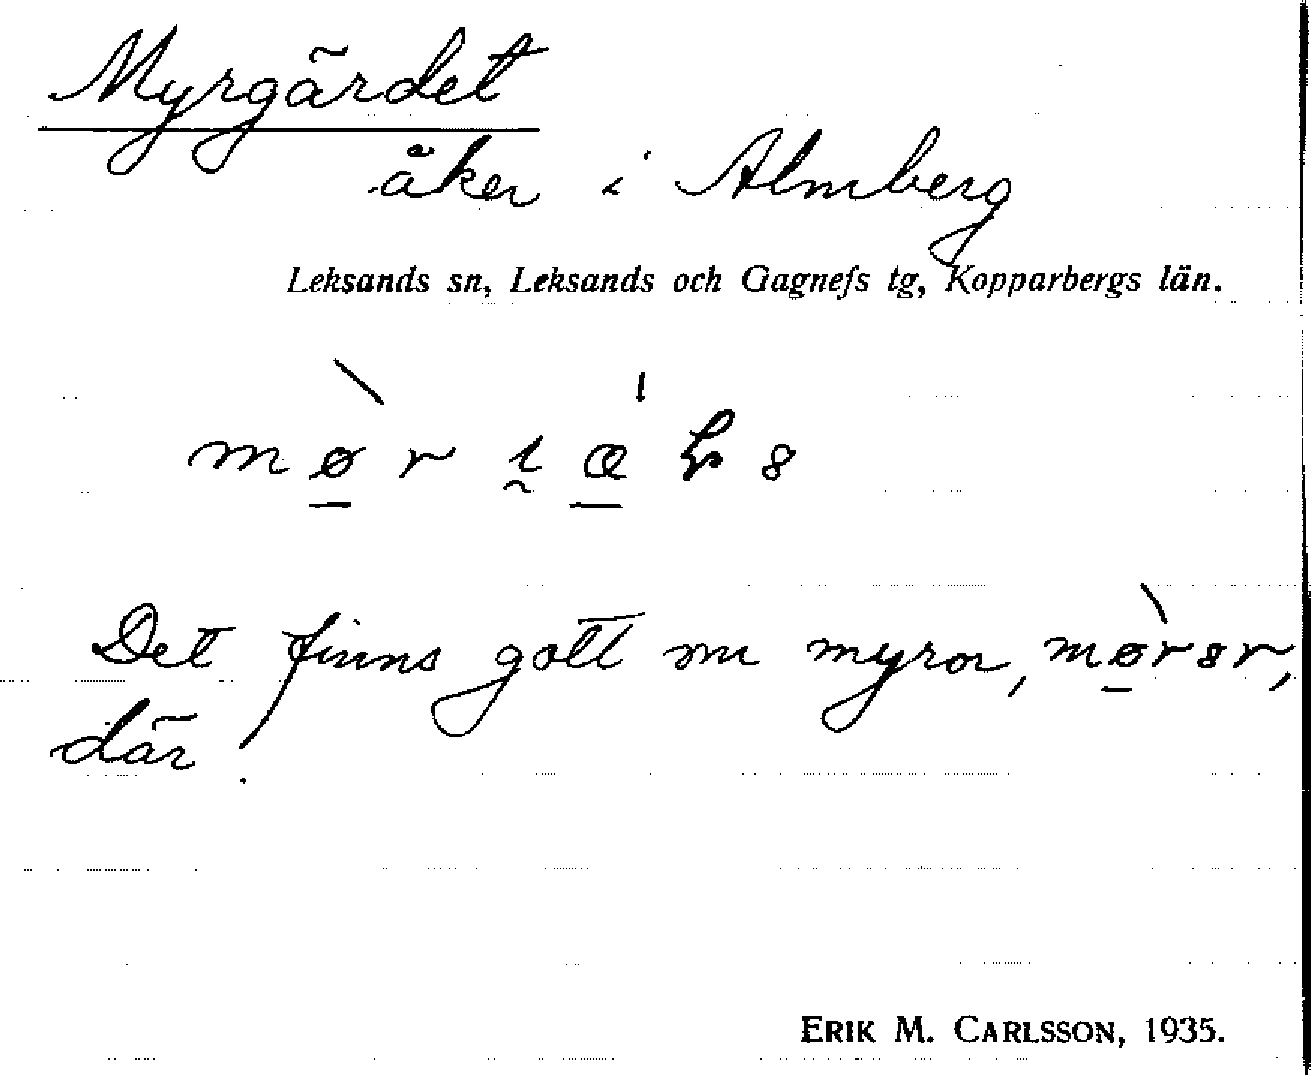 Myrgärdet
åker i Almberg
Leksands sn, Leksands och Gagnefs tg, Kopparbergs län.
Det finns gott om myror,
där!
ERIK M. CARLSSON, 1935.